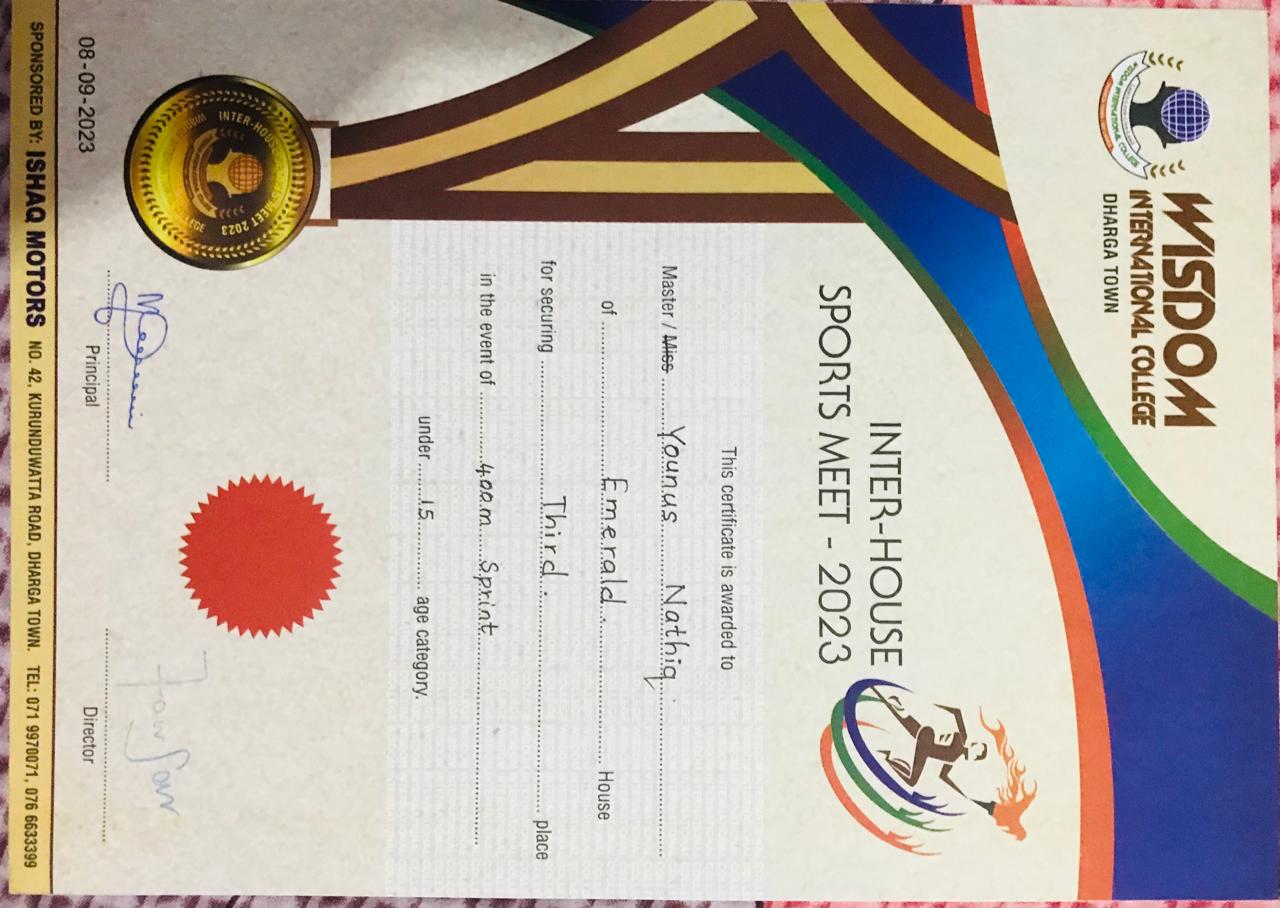 WISDOM
INTERNATIONAL COLLEGE
DHARGA TOWN
WISDOM INTERNATIONAL COLLEGE
INTER-HOUSE
SPORTS MEET - 2023
This certificate is awarded to
Master / Miss Younus Nathiq
of Emerald. House
for securing Third. place
in the event of 400m Sprint
under 15 age category.
INTER-HOUSE SPORTS MEET 2023
WISDOM INTERNATIONAL COLLEGE
08-09-2023
Principal
Director
SPONSORED BY: ISHAQ MOTORS NO. 42, KURUNDUWATTA ROAD, DHARGA TOWN. TEL: 071 9970071, 076 6633399